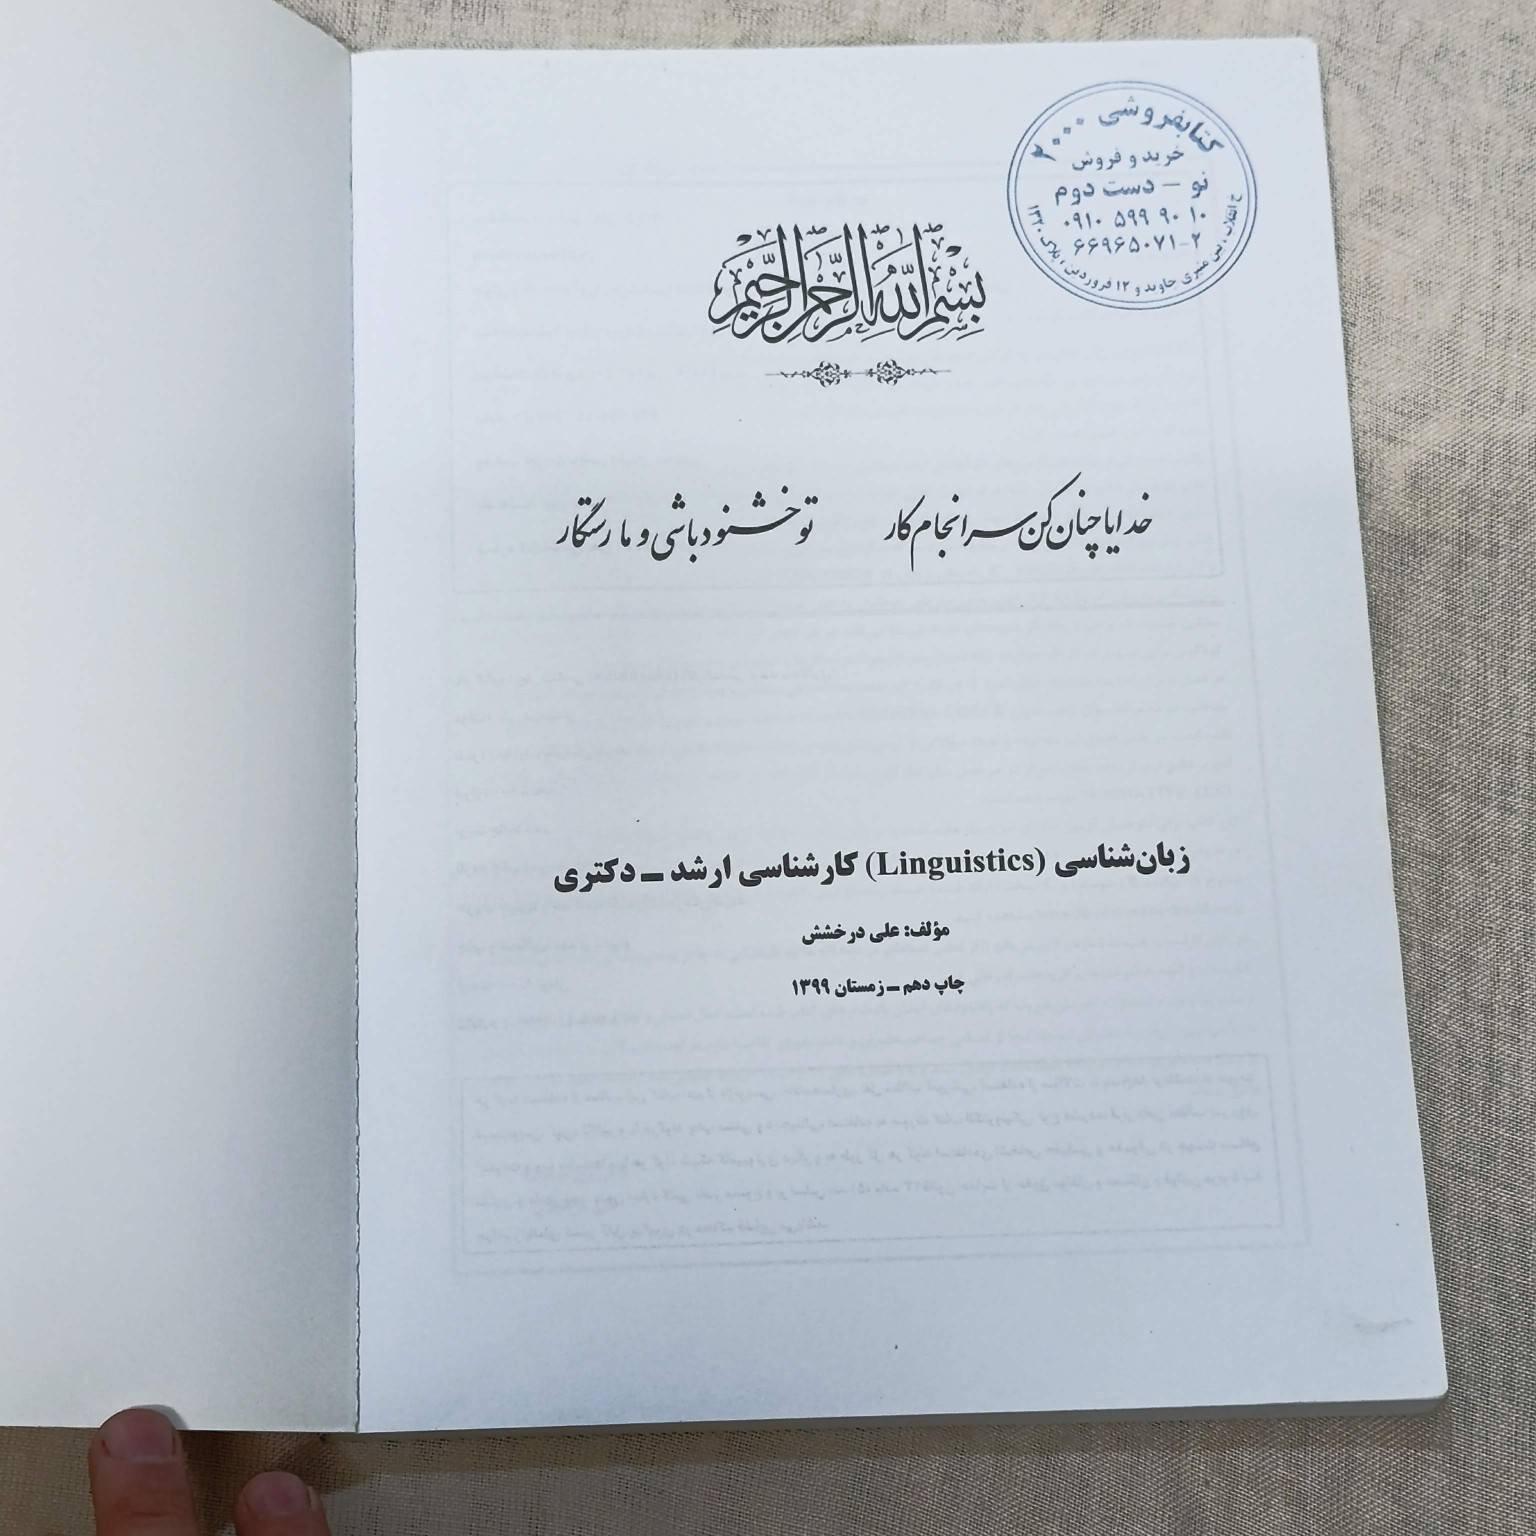 کتابفروشی ۲۰۰۰
خرید و فروش
نو - دست دوم
۰۹۱۰ ۵۹۹ ۹۰ ۱۰
۶۶۹۶۵۰۷۱-۲
خ انقلاب، بین منیری جاوید و ۱۲ فروردین، پلاک ۱۳۲۰
بسم الله الرحمن الرحیم
خدایا چنان کن سرانجام کار تو خشنود باشی و ما رستگار
زبان‌شناسی (Linguistics) کارشناسی ارشد ـ دکتری
مؤلف: علی درخشش
چاپ دهم ـ زمستان ۱۳۹۹